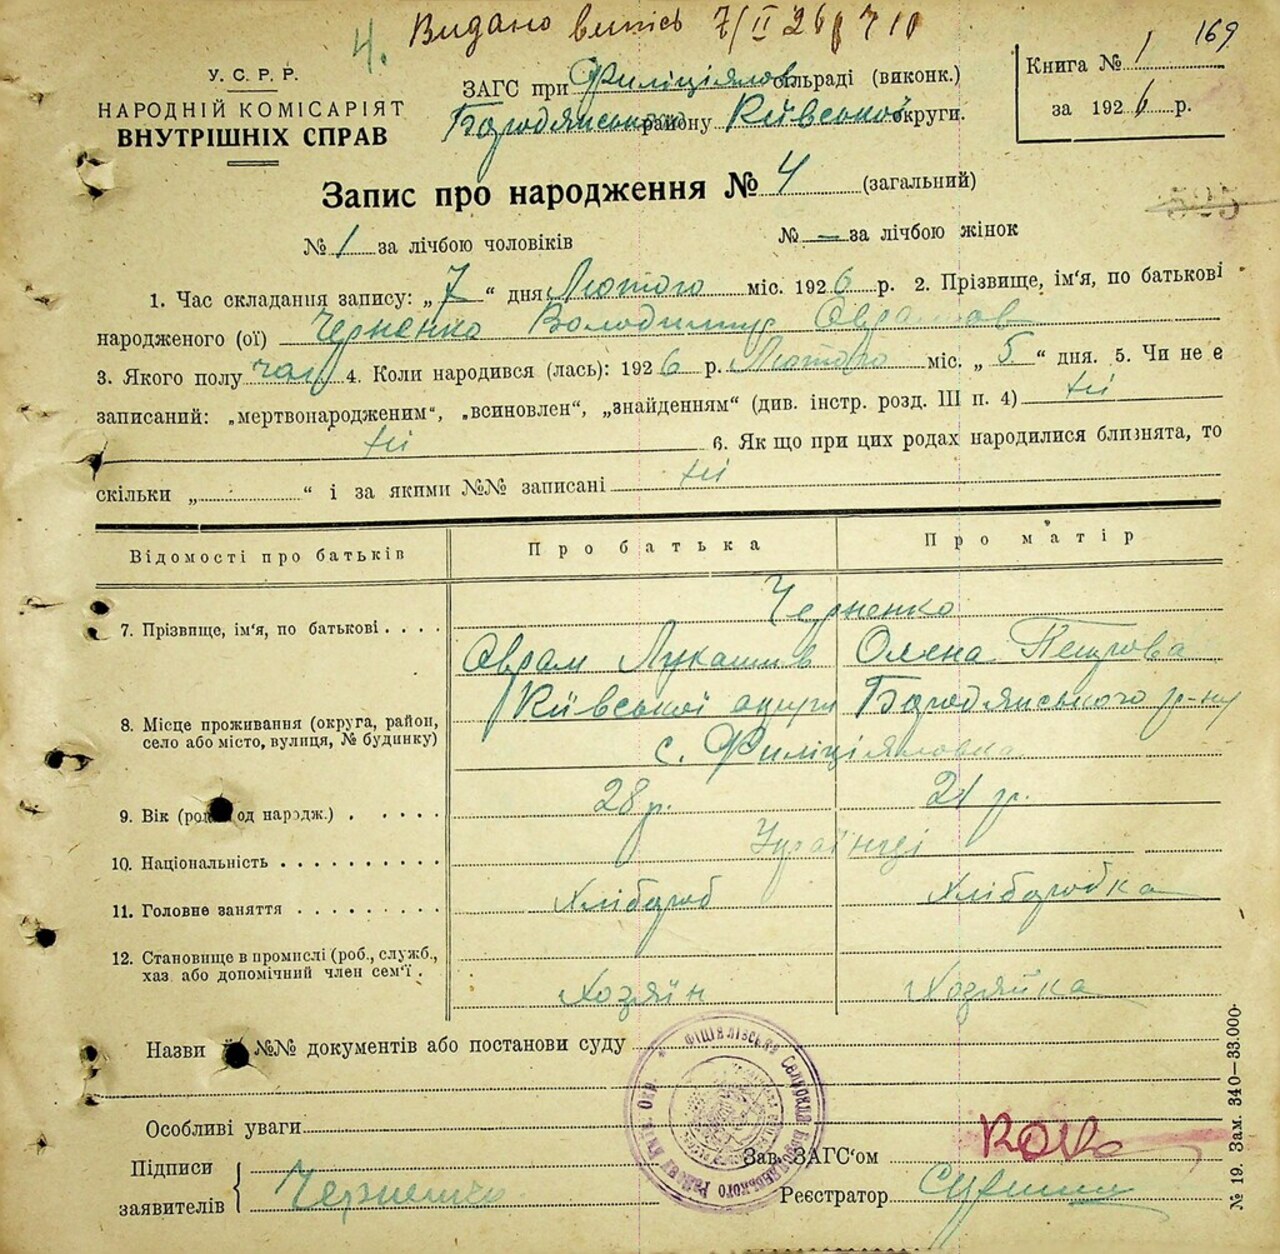 4. Видано випісь 7/II 26 р
169
У. С. Р. Р.
НАРОДНІЙ КОМІСАРІЯТ
ВНУТРІШНІХ СПРАВ
ЗАГС при Филіціялов сільраді (виконк.)
Бородянський району Київської округи.
Книга № 1
за 1926 р.
Запис про народження № 4 (загальний)
525
№ 1 за лічбою чоловіків № — за лічбою жінок
1. Час складання запису: „ 7 “ дня Лютого міс. 1926 р. 2. Прізвище, ім‘я, по батькові
народженого (ої) Черненко Володимир Аврамов
3. Якого полу чол 4. Коли народився (лась): 1926 р. Лютого міс. „ 5 “ дня. 5. Чи не є
записаний: „мертвонародженим“, „всиновлен“, „знайденням“ (див. інстр. розд. III п. 4) ні
ні 6. Як що при цих родах народилися близнята, то
скільки „ “ і за якими №№ записані ні
Відомості про батьків Про батька Про матір
Черненко
7. Прізвище, ім‘я, по батькові Аврам Лукашів Олена Петрова
8. Місце проживання (округа, район,
село або місто, вулиця, № будинку)
Київської округи Бородянського р-ну
с. Филіціяловка
9. Вік (род од народж.) 28 р. 21 р.
10. Національність Українці
11. Головне заняття Хлібороб Хліборобка
12. Становище в промислі (роб., служб.,
хаз. або допомічний член сем‘ї.
Хозяїн Хозяйка
Назви й №№ документів або постанови суду
Особливі уваги
Підписи
заявителів
Черненко
Зав. ЗАГС‘ом
Реєстратор
№ 19. Зам. 340—33.000.